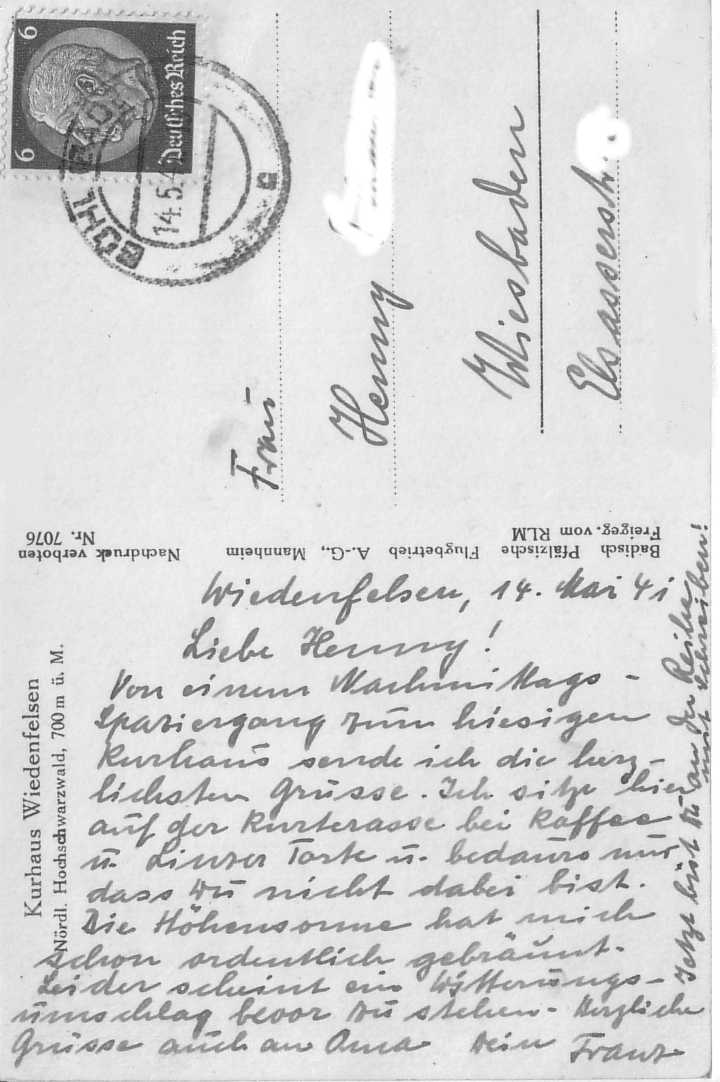 6 6
Deutsches Reich
14.5.4
Frau
Henny
Wiesbaden
Elsasserstr.
Nachdruck verboten
Nr. 7076
Badisch Pfälzische Flugbetrieb A.-G., Mannheim
Freigeg. vom RLM
Kurhaus Wiedenfelsen
Nördl. Hochschwarzwald, 700 m ü. M.
Wiedenfelsen, 14. Mai 41
Liebe Henny!
Von einem Nachmittags-
spaziergang zum hiesigen
Kurhaus sende ich die herz-
lichsten Grüsse. Ich sitze hier
auf der Kurterasse bei Kaffee
u. Linzer Torte u. bedaure nur
dass Du nicht dabei bist.
Die Höhensonne hat mich
schon ordentlich gebräunt.
Leider scheint ein Witterungs-
umschlag bevor zu stehen. Herzliche
Grüsse auch an Oma Dein Franz
Jetzt bist Du an der Reihe
mit schreiben!